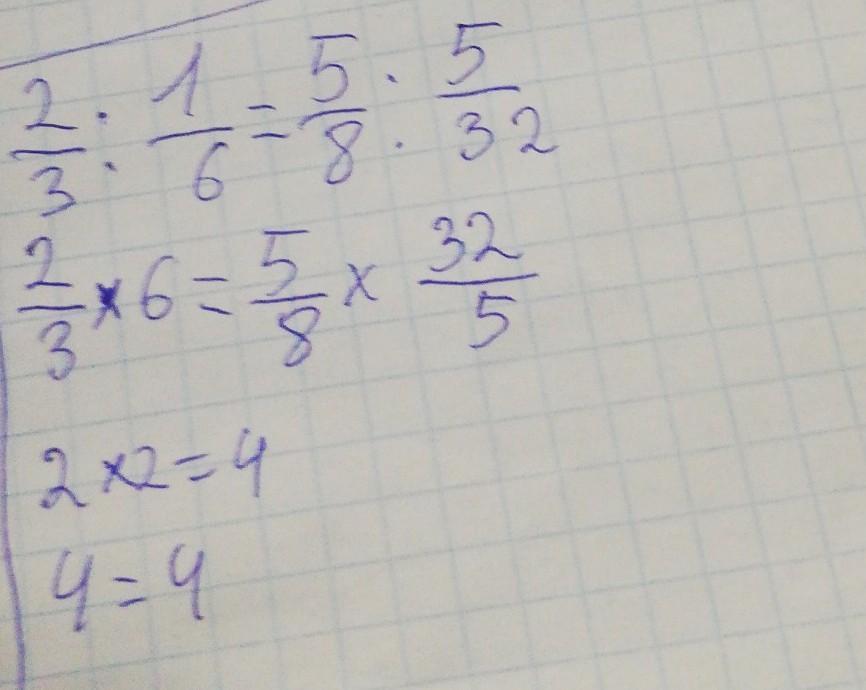 2/3 : 1/6 = 5/8 : 5/32
2/3 × 6 = 5/8 × 32/5
2 × 2 = 4
4 = 4